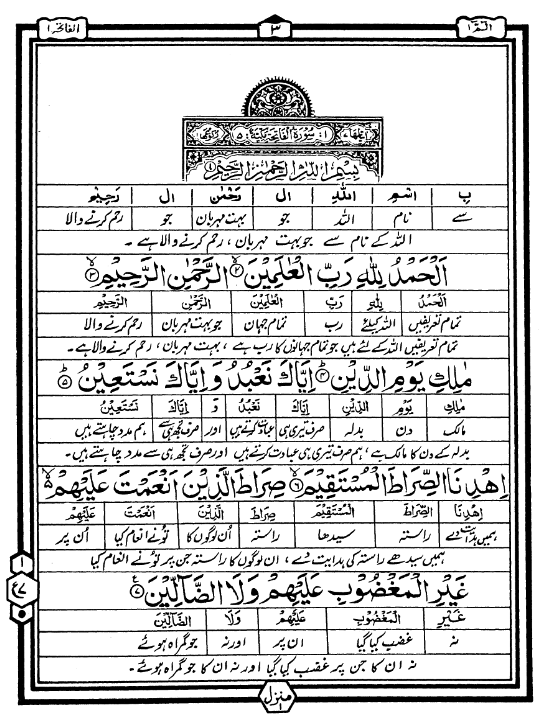 الفاتحہ ١
٣
الٓمّٓ ١
سُوْرَةُ الْفَاتِحَةِ مَكِّيَّةٌ
بِسْمِ اللّٰهِ الرَّحْمٰنِ الرَّحِيْمِ
بِ اسْمِ اللّٰهِ ال رَحْمٰن ال رَحِيْم
سے نام اللہ جو بہت مہربان جو رحم کرنے والا
اللہ کے نام سے جو بہت مہربان ، رحم کرنے والا ہے ۔
اَلْحَمْدُ لِلّٰهِ رَبِّ الْعٰلَمِيْنَ ۙ٢ الرَّحْمٰنِ الرَّحِيْمِ ۙ٣
اَلْحَمْدُ لِلّٰهِ رَبِّ الْعٰلَمِيْنَ الرَّحْمٰنِ الرَّحِيْمِ
تمام تعریفیں اللہ کیلئے رب تمام جہان جو بہت مہربان رحم کرنے والا
تمام تعریفیں اللہ کے لئے ہیں جو تمام جہانوں کا رب ہے ، بہت مہربان ، رحم کرنے والا ہے۔
مٰلِكِ يَوْمِ الدِّيْنِ ؕ٤ اِيَّاكَ نَعْبُدُ وَ اِيَّاكَ نَسْتَعِيْنُ ؕ٥
مٰلِكِ يَوْمِ الدِّيْنِ اِيَّاكَ نَعْبُدُ وَ اِيَّاكَ نَسْتَعِيْنُ
مالک دن بدلہ صرف تیری ہی عبادت کرتے ہیں اور صرف تجھ ہی سے ہم مدد چاہتے ہیں
بدلہ کے دن کا مالک ہے ، ہم صرف تیری ہی عبادت کرتے ہیں اور صرف تجھ ہی سے مدد چاہتے ہیں۔
اِهْدِنَا الصِّرَاطَ الْمُسْتَقِيْمَ ۙ٦ صِرَاطَ الَّذِيْنَ اَنْعَمْتَ عَلَيْهِمْ
اِهْدِنَا الصِّرَاطَ الْمُسْتَقِيْمَ صِرَاطَ الَّذِيْنَ اَنْعَمْتَ عَلَيْهِمْ
ہمیں ہدایت دے راستہ سیدھا راستہ اُن لوگوں کا تُونے انعام کیا اُن پر
ہمیں سیدھے راستہ کی ہدایت دے ، ان لوگوں کا راستہ جن پر تُونے انعام کیا
غَيْرِ الْمَغْضُوْبِ عَلَيْهِمْ وَلَا الضَّآلِّيْنَ ٧
غَيْرِ الْمَغْضُوْبِ عَلَيْهِمْ وَلَا الضَّآلِّيْنَ
نہ غضب کیا گیا ان پر اور نہ جو گمراہ ہوئے
نہ ان کا جن پر غضب کیا گیا اور نہ ان کا جو گمراہ ہوئے ۔
١
ع
٧
منزل